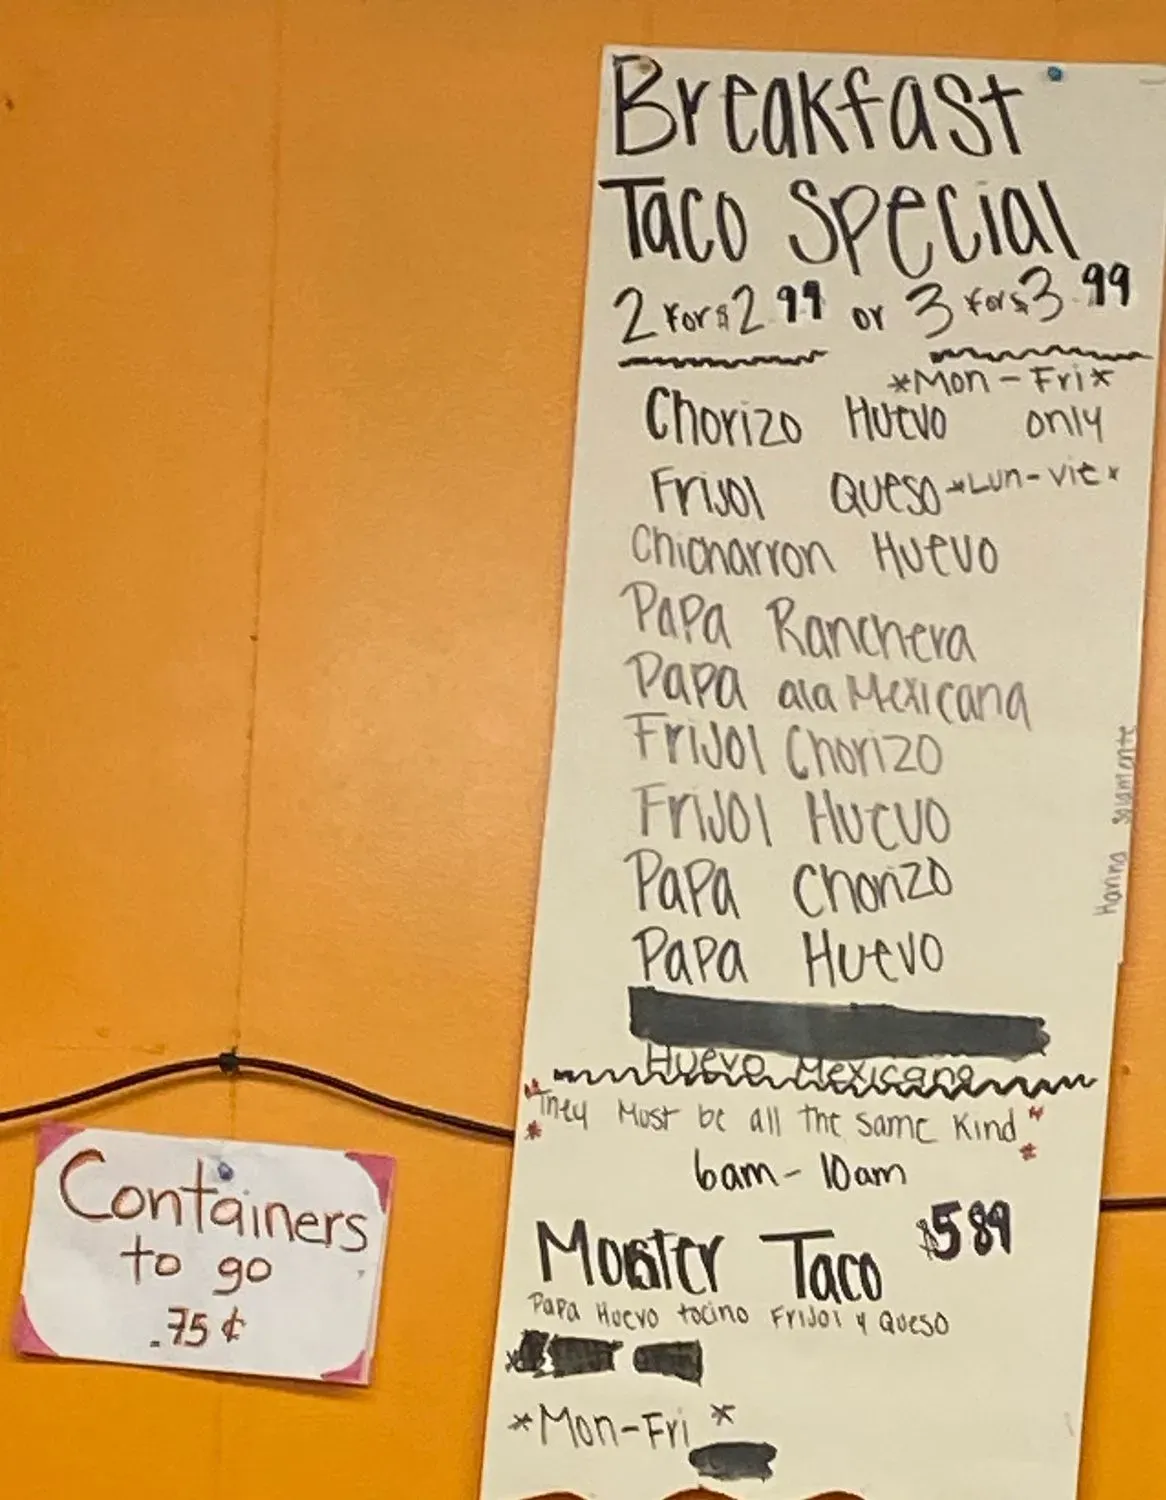 Breakfast
Taco Special
2 for $2.99 or 3 for $3.99
*Mon-Fri*
only
*Lun-vie*
Chorizo Huevo
Frijol Queso
Chicharron Huevo
Papa Ranchera
Papa ala Mexicana
Frijol Chorizo
Frijol Huevo
Papa Chorizo
Papa Huevo
Huevo Mexicana
Harina solamente
"They Must be all the same Kind"
6am-10am
Monster Taco $5.89
Papa Huevo tocino Frijol y Queso
*Mon-Fri *
Containers
to go
.75¢